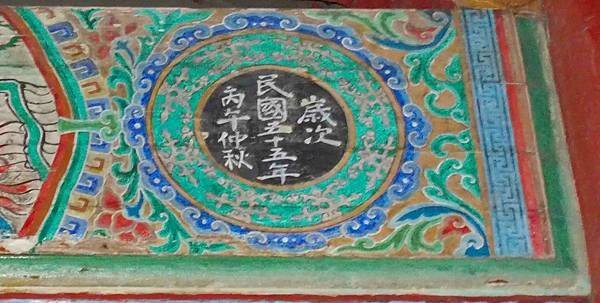 歲次
民國五十五年
丙午仲秋